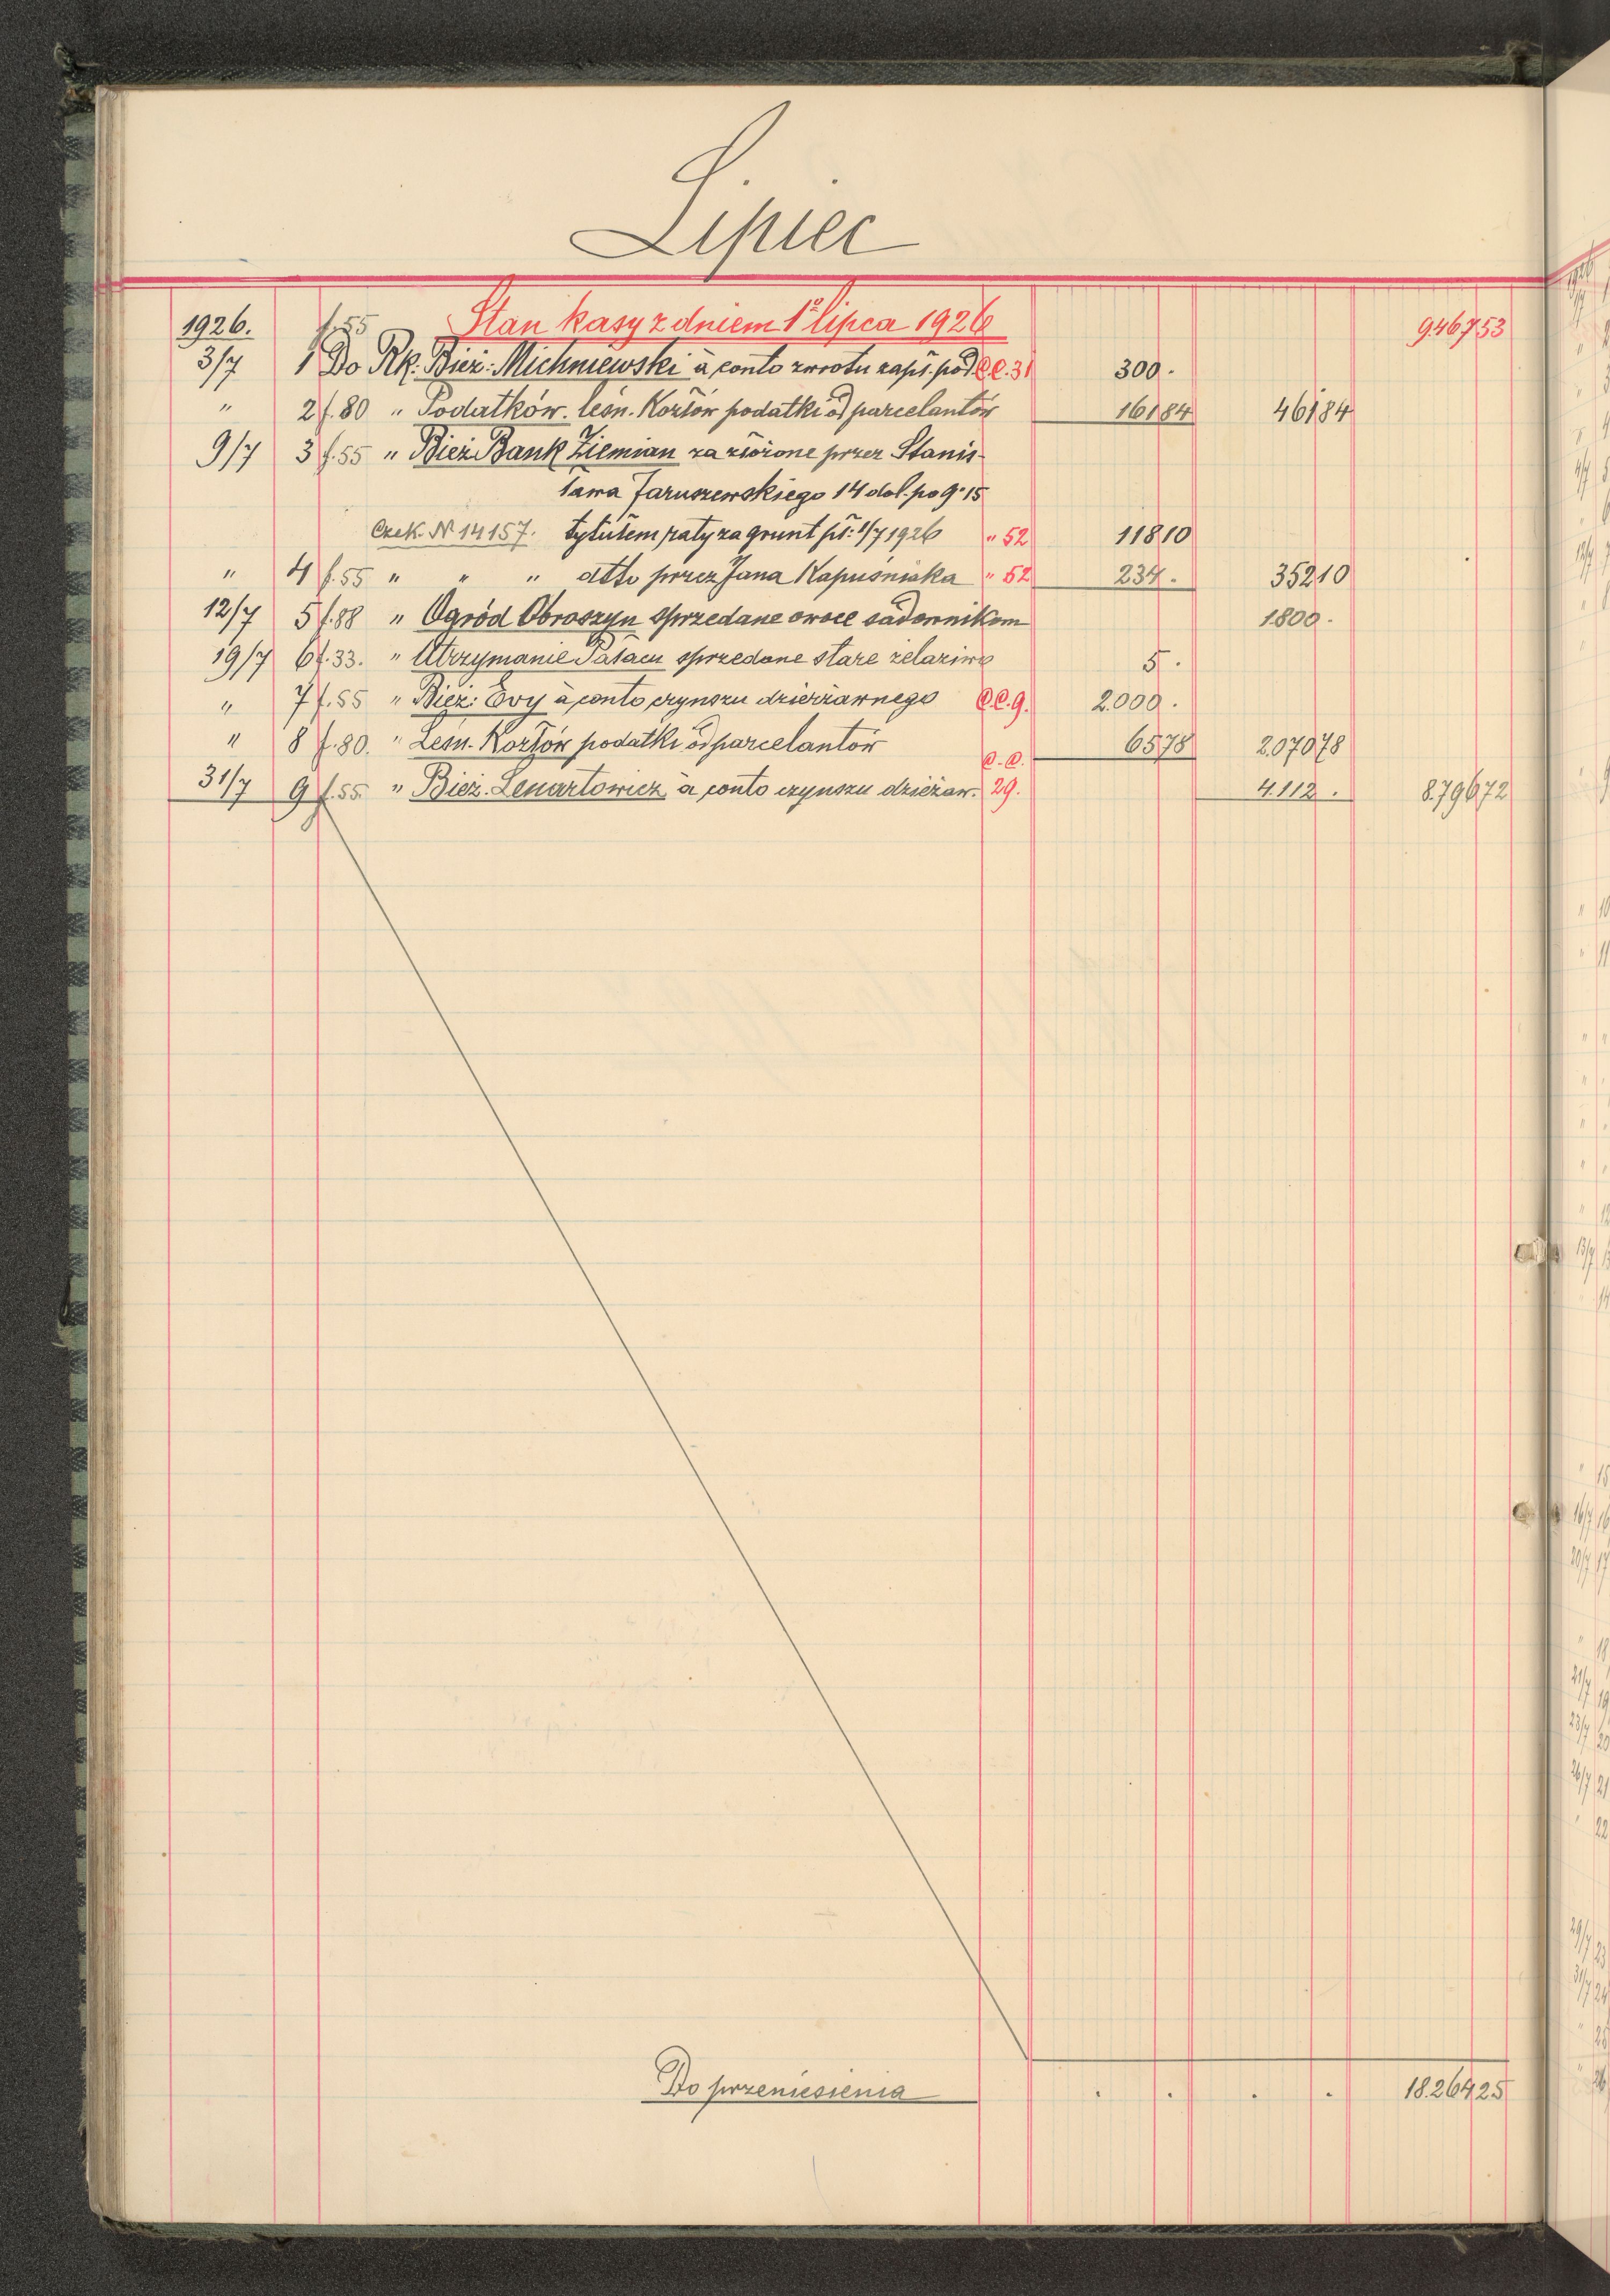 Lipiec
1926. f. 55 Stan kasy z dniem 1º lipca 1926 9.467 53
3/7 1 Do Rk. Bież: Michniewski à conto zwrotu zapł. pod C.C. 31 300 .
" 2 f. 80 " Podatków. leśn. Kozłów podatki od parcelantów 161 84 461 84
9/7 3 f. 55 " Bież. Bank Ziemian za złożone przez Stanis-
ława Jaruszewskiego 14 dol. po 9·15
Czek. Nº 14157. tytułem raty za grunt pł: 1/7 1926 " 52 118 10
" 4 f. 55 " " " dtto przez Jana Kapuśniaka " 52 234 . 352 10
12/7 5 f. 88 " Ogród Obroszyn sprzedane owoce sadownikom 1.800 .
19/7 6 f. 33. " Utrzymanie Pałacu sprzedane stare żelaziwo 5 .
" 7 f. 55 " Bież: Evy à conto czynszu dzierżawnego C.C. 9. 2.000 .
" 8 f. 80. " Leśn. Kozłów podatki od parcelantów 65 78 2.070 78
31/7 9 f. 55. " Bież. Lenartowicz à conto czynszu dzieżaw. C.C. 29. 4.112 . 8.796 72
Do przeniesienia . . . . 18.264 25